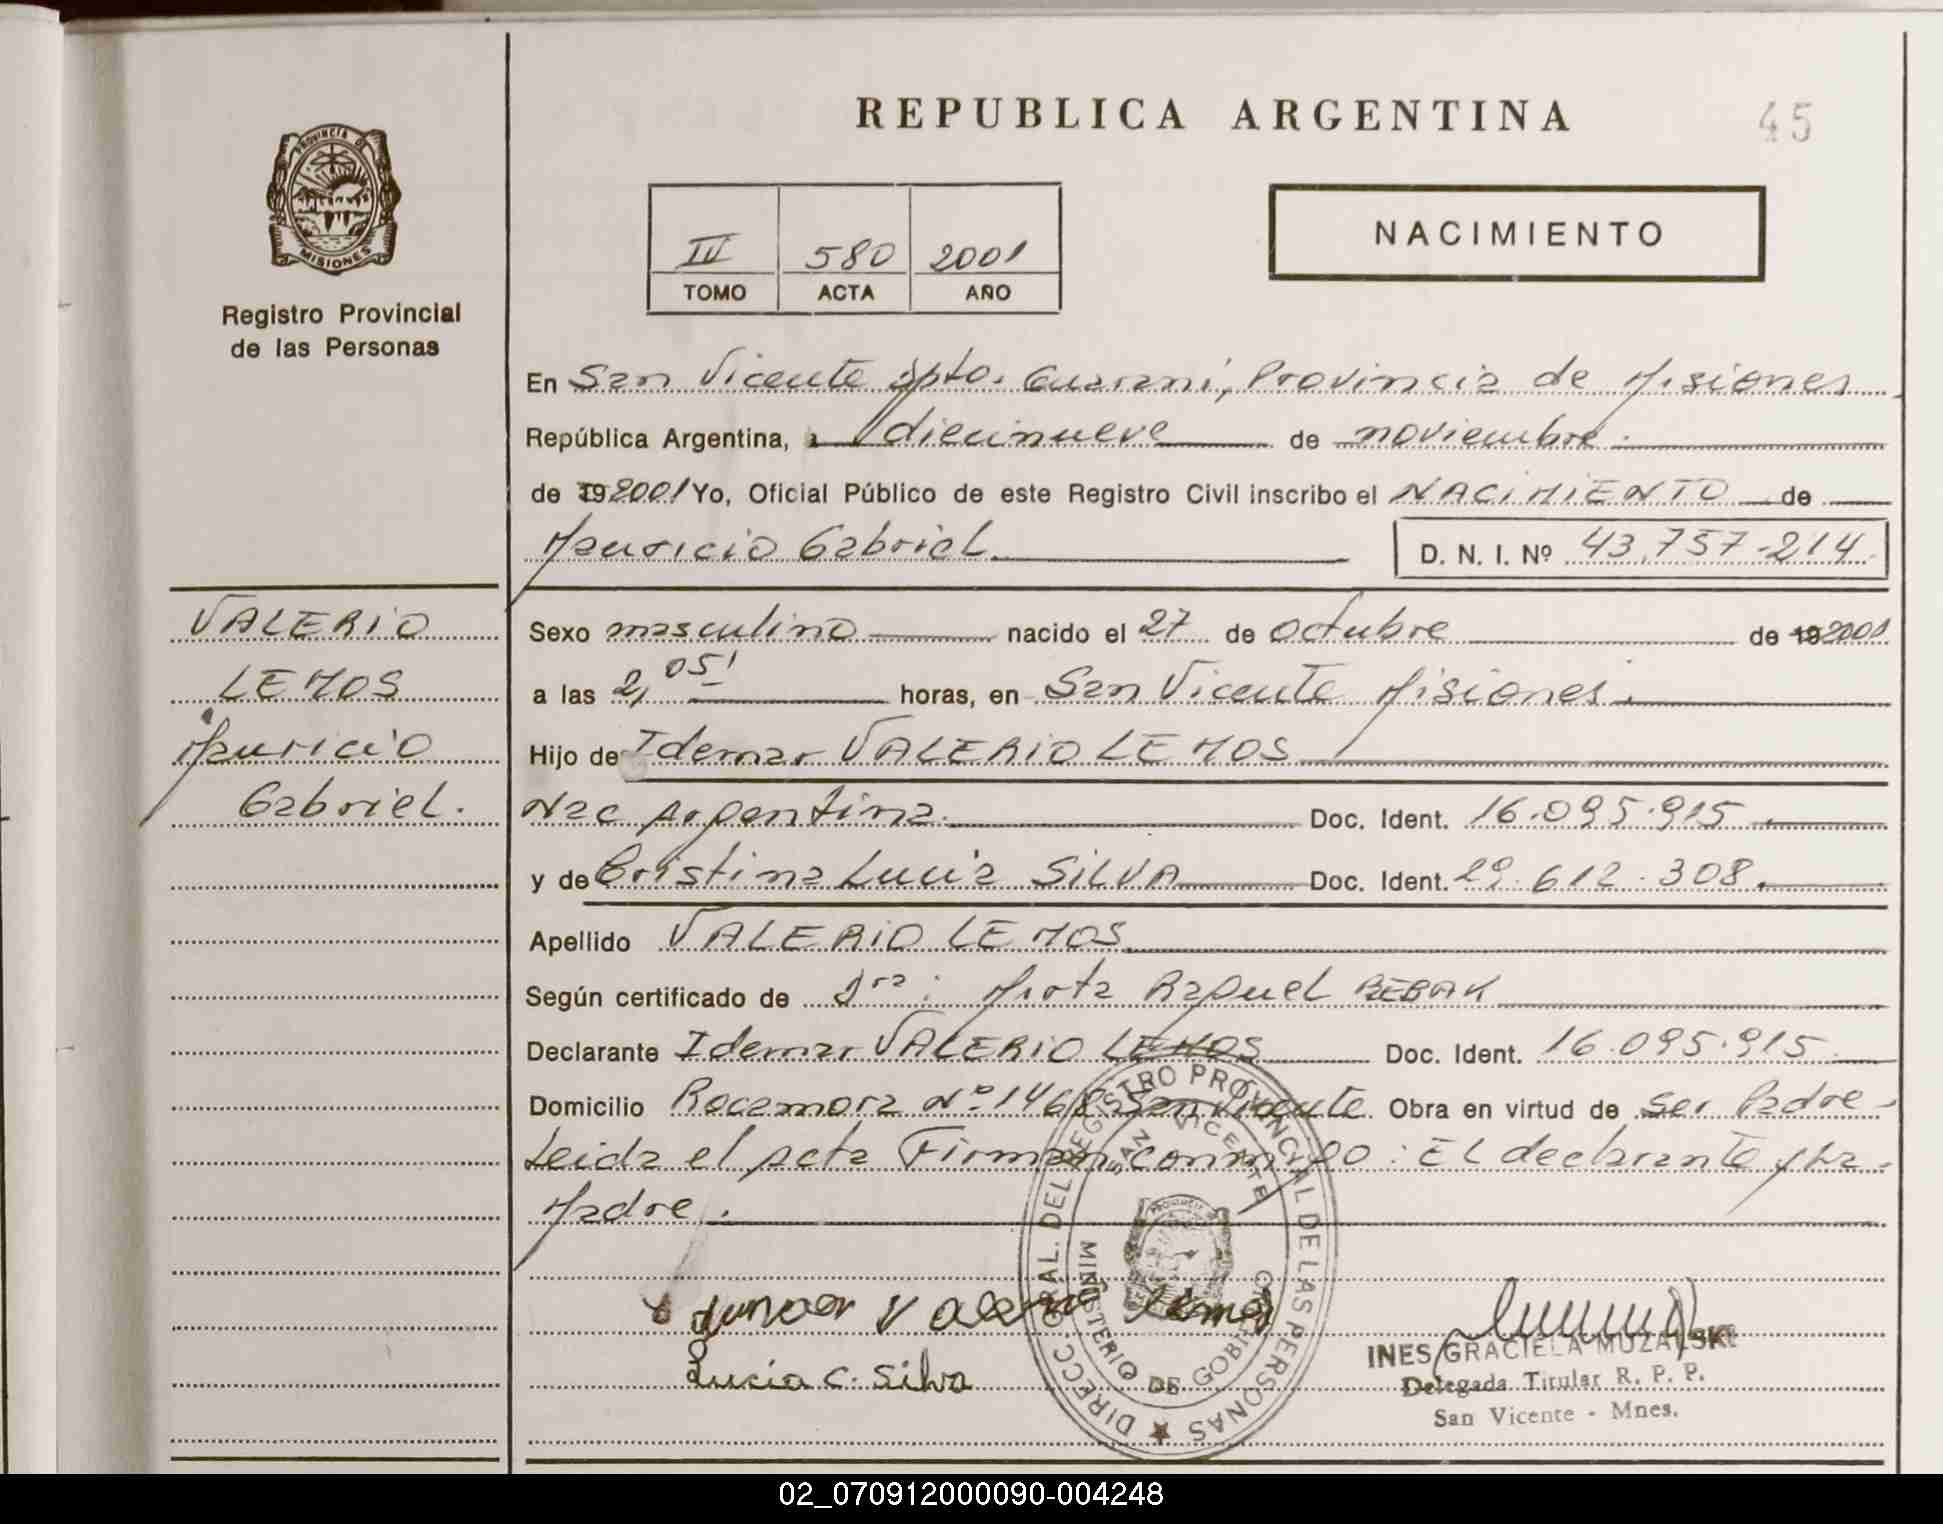 REPUBLICA ARGENTINA
45
PROVINCIA DE
MISIONES
Registro Provincial
de las Personas
III 580 2001
TOMO ACTA AÑO
NACIMIENTO
En San Vicente Dpto. Guaraní, Provincia de Misiones
República Argentina, a diecinueve de noviembre.
de 192001 Yo, Oficial Público de este Registro Civil inscribo el NACIMIENTO de
Mauricio Gabriel D. N. I. Nº 43.757-214.
VALERIO
LEMOS
Mauricio
Gabriel.
Sexo masculino nacido el 27 de octubre de 192001
a las 2,05' horas, en San Vicente Misiones.
Hijo de Idemar VALERIO LEMOS
Nac Argentina. Doc. Ident. 16.095.915.
y de Cristina Lucía SILVA Doc. Ident. 29.612.308.
Apellido VALERIO LEMOS
Según certificado de Dra: Mirta Raquel BEBAK
Declarante Idemar VALERIO LEMOS Doc. Ident. 16.095.915.
Domicilio Rocamora Nº 1468 San Vicente. Obra en virtud de ser Padre-
Leida el acta Firman conmigo: El declarante y La-
Madre.
DIRECC. GRAL. DEL REGISTRO PROVINCIAL DE LAS PERSONAS
SAN VICENTE
MINISTERIO DE GOBIERNO
Valerio Lemos
Lucia C. Silva
INES GRACIELA MUZALSKI
Delegada Titular R. P. P.
San Vicente - Mnes.
02_070912000090-004248